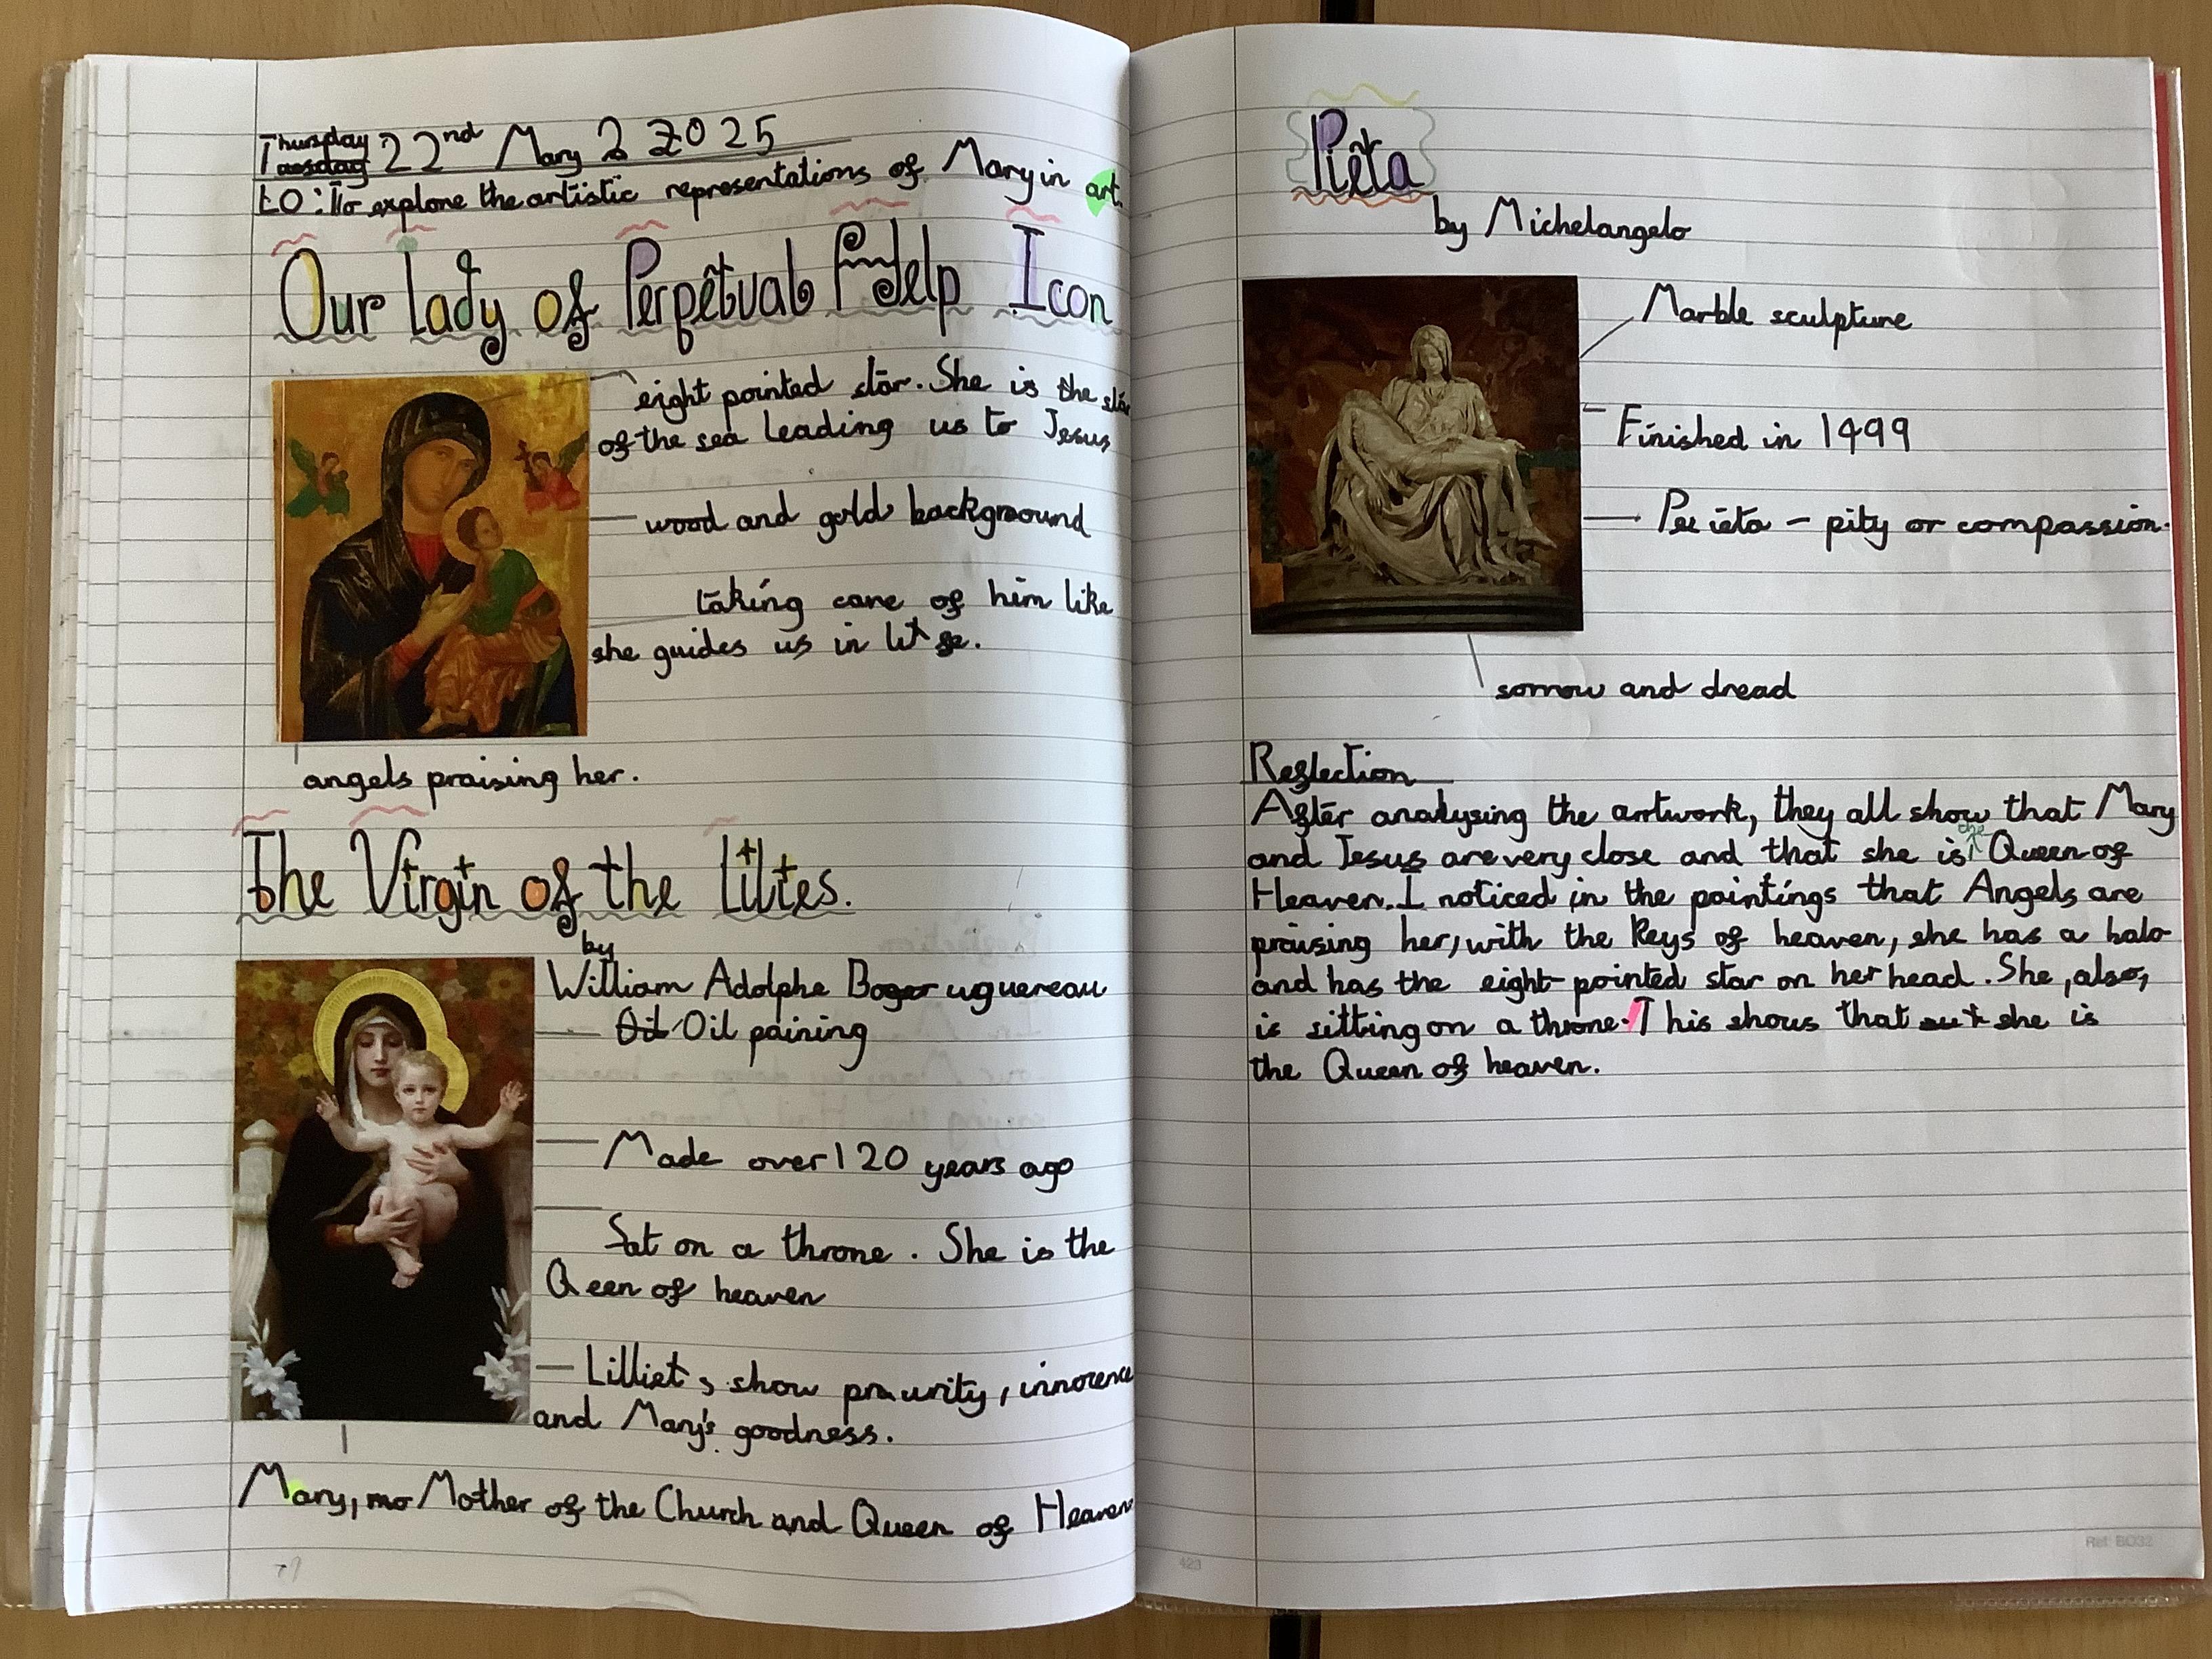 Thursday
Tuesday 22nd Mary 2 2025
LO: To explore the artistic representations of Mary in art.
Our Lady of Perpetual Help Icon
eight pointed star. She is the star
of the sea leading us to Jesus
wood and gold background
taking care of him like
she guides us in
angels praising her.
The Virgin of the Lilies.
by
William Adolphe Boger uguereau
Oil Oil paining
Made over 120 years ago
Sat on a throne. She is the
Qeen of heaven
Lilliet s show purity, innocence
and Mary's goodness.
Mary, mo Mother of the Church and Queen of Heaven
Pieta
by Michelangelo
Marble sculpture
Finished in 1499
Pe ieta - pity or compassion.
sorrow and dread
Reflection
After analysing the artwork, they all show that Mary
the
and Jesus are very close and that she is Queen of
Heaven. I noticed in the paintings that Angels are
praising her, with the keys of heaven, she has a halo
and has the eight-pointed star on her head. She, also,
is sitting on a throne. This shows that she is
the Queen of heaven.
423
Ref: BO32